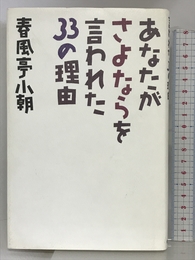 あなたが
さよならを
言われた
33の理由
春風亭小朝